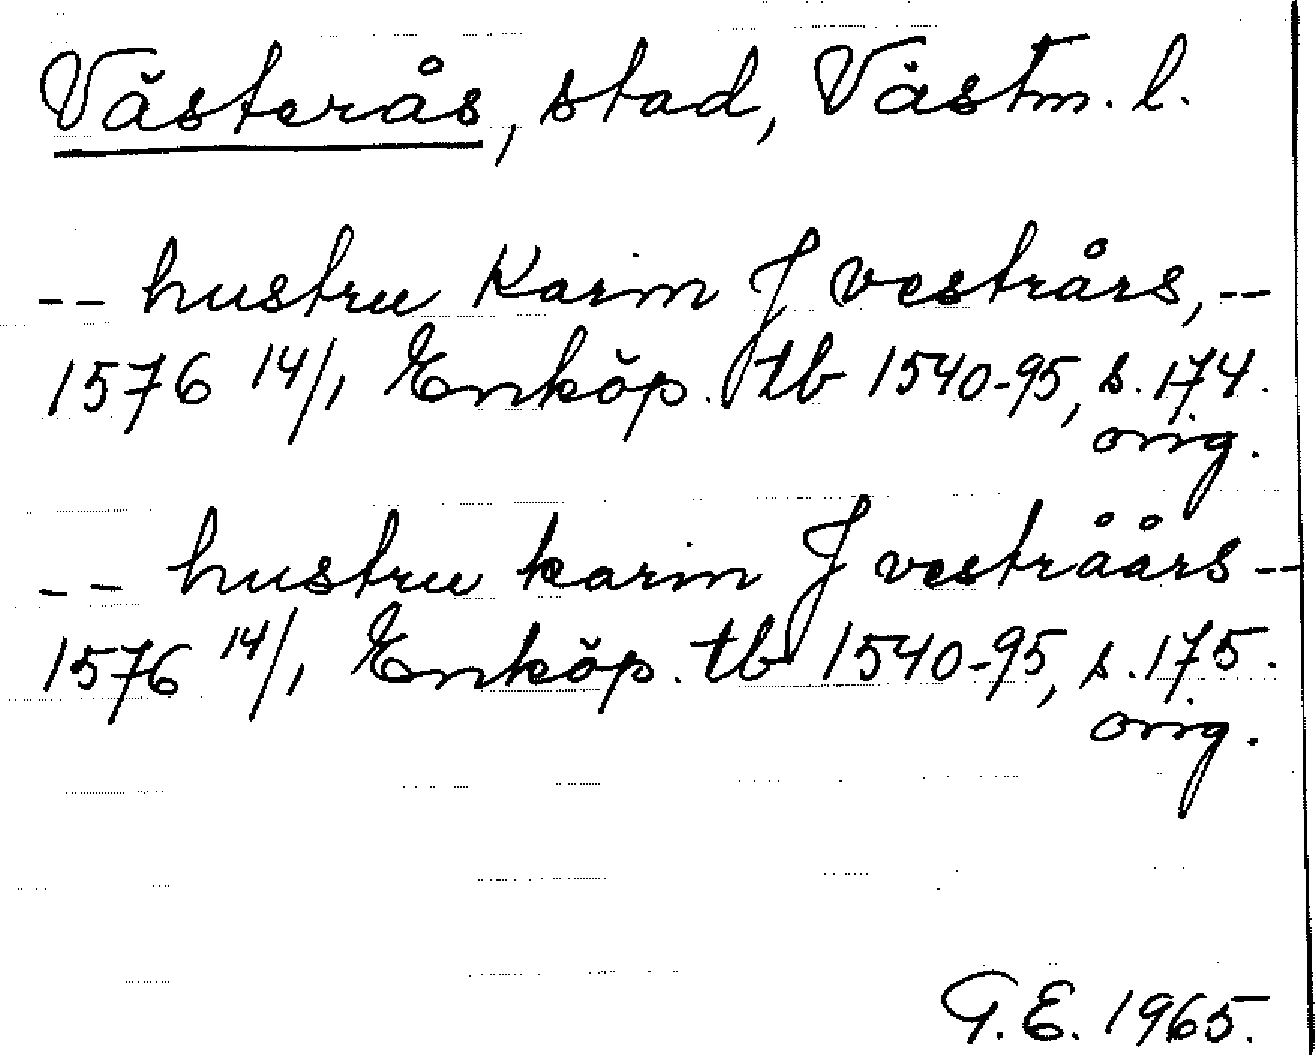 Västerås, stad, Västm. l.
-- hustru Karin J vestrårs, --
1576 14/1 Enköp. tb 1540-95, s. 174.
orig.
-- hustru karin J vestråårs --
1576 14/1 Enköp. tb 1540-95, s. 175.
orig.
G. E. 1965.